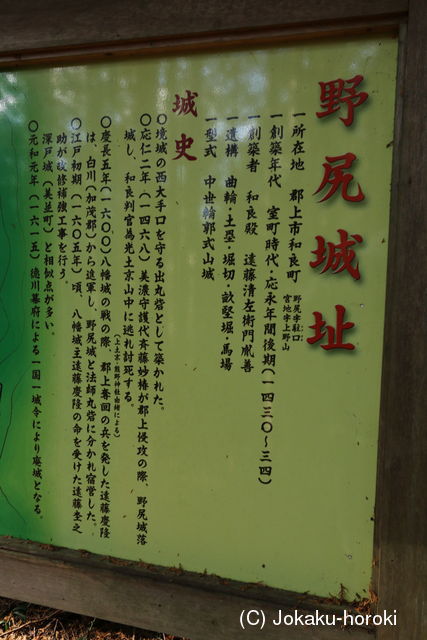 野尻城址
一所在地 郡上市和良町 野尻字駐口
宮地字上野山
一創築年代 室町時代・応永年間後期(一四三〇～三四)
一創築者 和良殿 遠藤清左衛門胤善
一遺構 曲輪・土塁・堀切・畝堅堀・馬場
一型式 中世輪郭式山城
城史
〇境城の西大手口を守る出丸砦として築かれた。
〇応仁二年(一四六八)美濃守護代斉藤妙椿が郡上侵攻の際、野尻城落
城し、和良判官為光土京山中に逃れ討死する。
(上土京・熊野神社由緒による)
〇慶長五年(一六〇〇)八幡城の戦の際、郡上奪回の兵を発した遠藤慶隆
は、白川(加茂郡)から迂軍し、野尻城と法師丸砦に分かれ宿営した。
〇江戸初期(一六〇五年)頃、八幡城主遠藤慶隆の命を受けた遠藤杢之
助が改修補強工事を行う。
深戸城(美並町)と相似点が多い。
〇元和元年(一六一五)徳川幕府による一国一城令により廃城となる。
(C) Jokaku-horoki